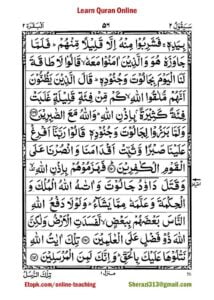 Learn Quran Online
سَيَقُوْلُ ٢ ٥٢ اَلْبَقَرَة ٢
بِيَدِهٖ ۚ فَشَرِبُوْا مِنْهُ اِلَّا قَلِيْلًا مِّنْهُمْ ؕ فَلَمَّا
جَاوَزَهٗ هُوَ وَالَّذِيْنَ اٰمَنُوْا مَعَهٗ ۙ قَالُوْا لَا طَاقَةَ
لَنَا الْيَوْمَ بِجَالُوْتَ وَجُنُوْدِهٖ ؕ قَالَ الَّذِيْنَ يَظُنُّوْنَ
اَنَّهُمْ مُّلٰقُوا اللّٰهِ ۙ كَمْ مِّنْ فِئَةٍ قَلِيْلَةٍ غَلَبَتْ
فِئَةً كَثِيْرَةًۢ بِاِذْنِ اللّٰهِ ؕ وَاللّٰهُ مَعَ الصّٰبِرِيْنَ
وَلَمَّا بَرَزُوْا لِجَالُوْتَ وَجُنُوْدِهٖ قَالُوْا رَبَّنَآ اَفْرِغْ
عَلَيْنَا صَبْرًا وَّثَبِّتْ اَقْدَامَنَا وَانْصُرْنَا عَلَى
الْقَوْمِ الْكٰفِرِيْنَ فَهَزَمُوْهُمْ بِاِذْنِ اللّٰهِ
وَقَتَلَ دَاوٗدُ جَالُوْتَ وَاٰتٰىهُ اللّٰهُ الْمُلْكَ
وَالْحِكْمَةَ وَعَلَّمَهٗ مِمَّا يَشَآءُ ؕ وَلَوْلَا دَفْعُ اللّٰهِ
النَّاسَ بَعْضَهُمْ بِبَعْضٍ لَّفَسَدَتِ الْاَرْضُ وَلٰكِنَّ
اللّٰهَ ذُوْ فَضْلٍ عَلَى الْعٰلَمِيْنَ تِلْكَ اٰيٰتُ اللّٰهِ
نَتْلُوْهَا عَلَيْكَ بِالْحَقِّ ؕ وَاِنَّكَ لَمِنَ الْمُرْسَلِيْنَ
منزل ١
تِلْكَ الرُّسُلُ
Etopk.com/online-teaching Sherazi313@gmail.com